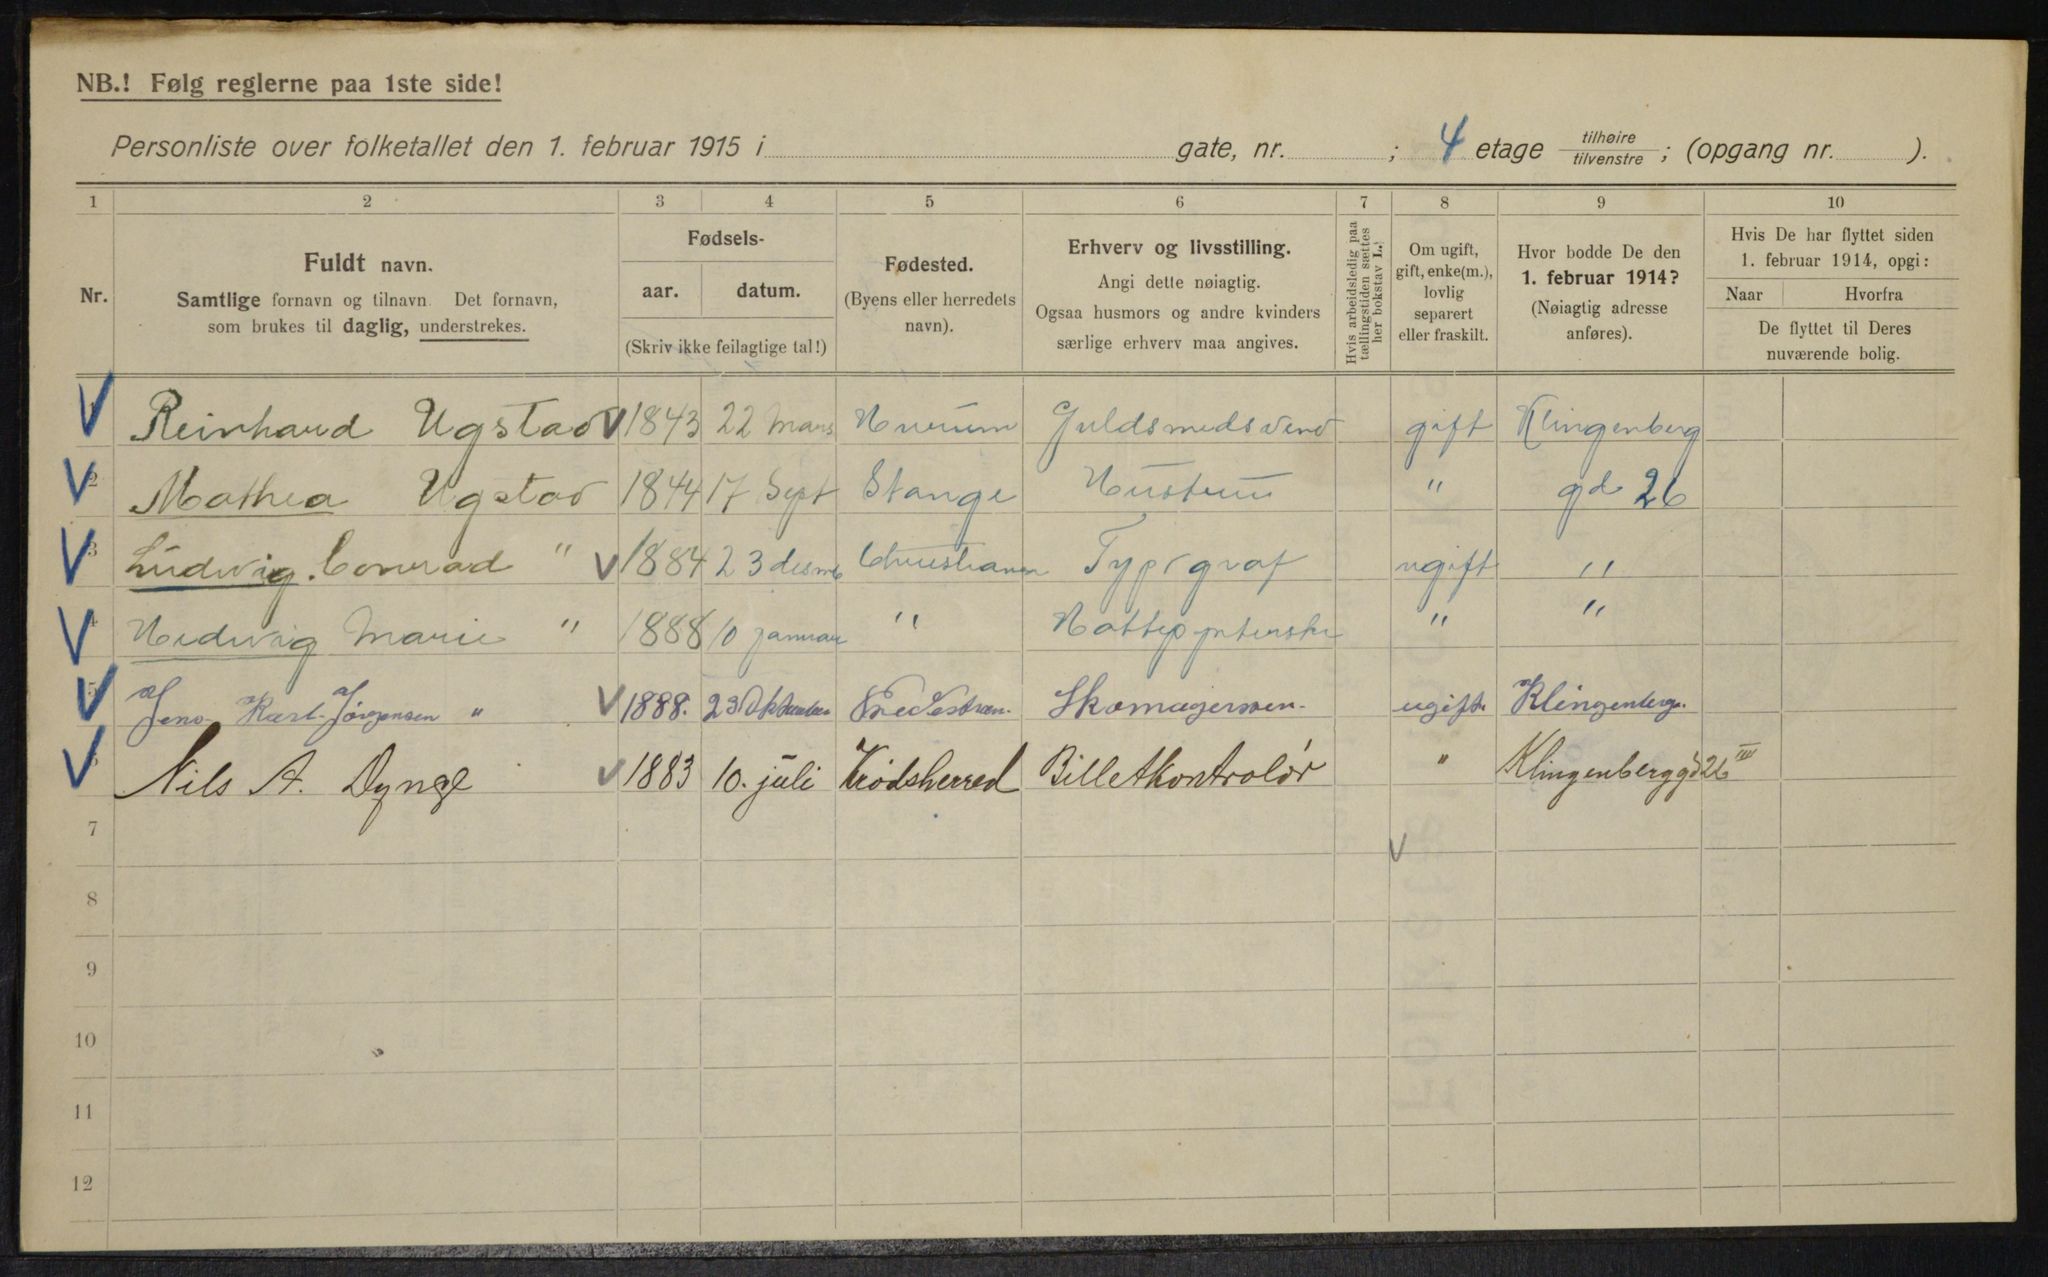 NB.! Følg reglerne paa 1ste side!
Personliste over folketallet den 1. februar 1915 i gate, nr. ; 4 etage tilhøire/tilvenstre ; (opgang nr. ).
1 2 3 4 5 6 7 8 9 10
Nr.
Fuldt navn.
Samtlige fornavn og tilnavn. Det fornavn,
som brukes til daglig, understrekes.
Fødsels-
aar. datum.
(Skriv ikke feilagtige tal!)
Fødested.
(Byens eller herredets
navn).
Erhverv og livsstilling.
Angi dette nøiagtig.
Ogsaa husmors og andre kvinders
særlige erhverv maa angives.
Hvis arbeidsledig paa
tællingstiden sættes
her bokstav L.
Om ugift,
gift, enke(m.),
lovlig
separert
eller fraskilt.
Hvor bodde De den
1. februar 1914?
(Nøiagtig adresse
anføres).
Hvis De har flyttet siden
1. februar 1914, opgi:
Naar Hvorfra
De flyttet til Deres
nuværende bolig.
1 Reinhard Ugstad V 1843 22 Mars Hurum Guldsmedsvend gift Klingenberg
2 Mathea Ugstad 1844 17 Sept Stange Hustru " gd 26
3 Ludvig Conrad " V 1884 23 desmb Christiania Typograf ugift "
4 Hedvig Marie " 1888 10 januar " " "
5 Jens Karl Jørgensen " V 1888. 23 Oktober Skomagersven. ugift. Klingenberg.
6 Nils A. Dynge V 1883 10. juli Krødsherred Billetkontrolør " Klingenberggd 26 IIII
7
8
9
10
11
12